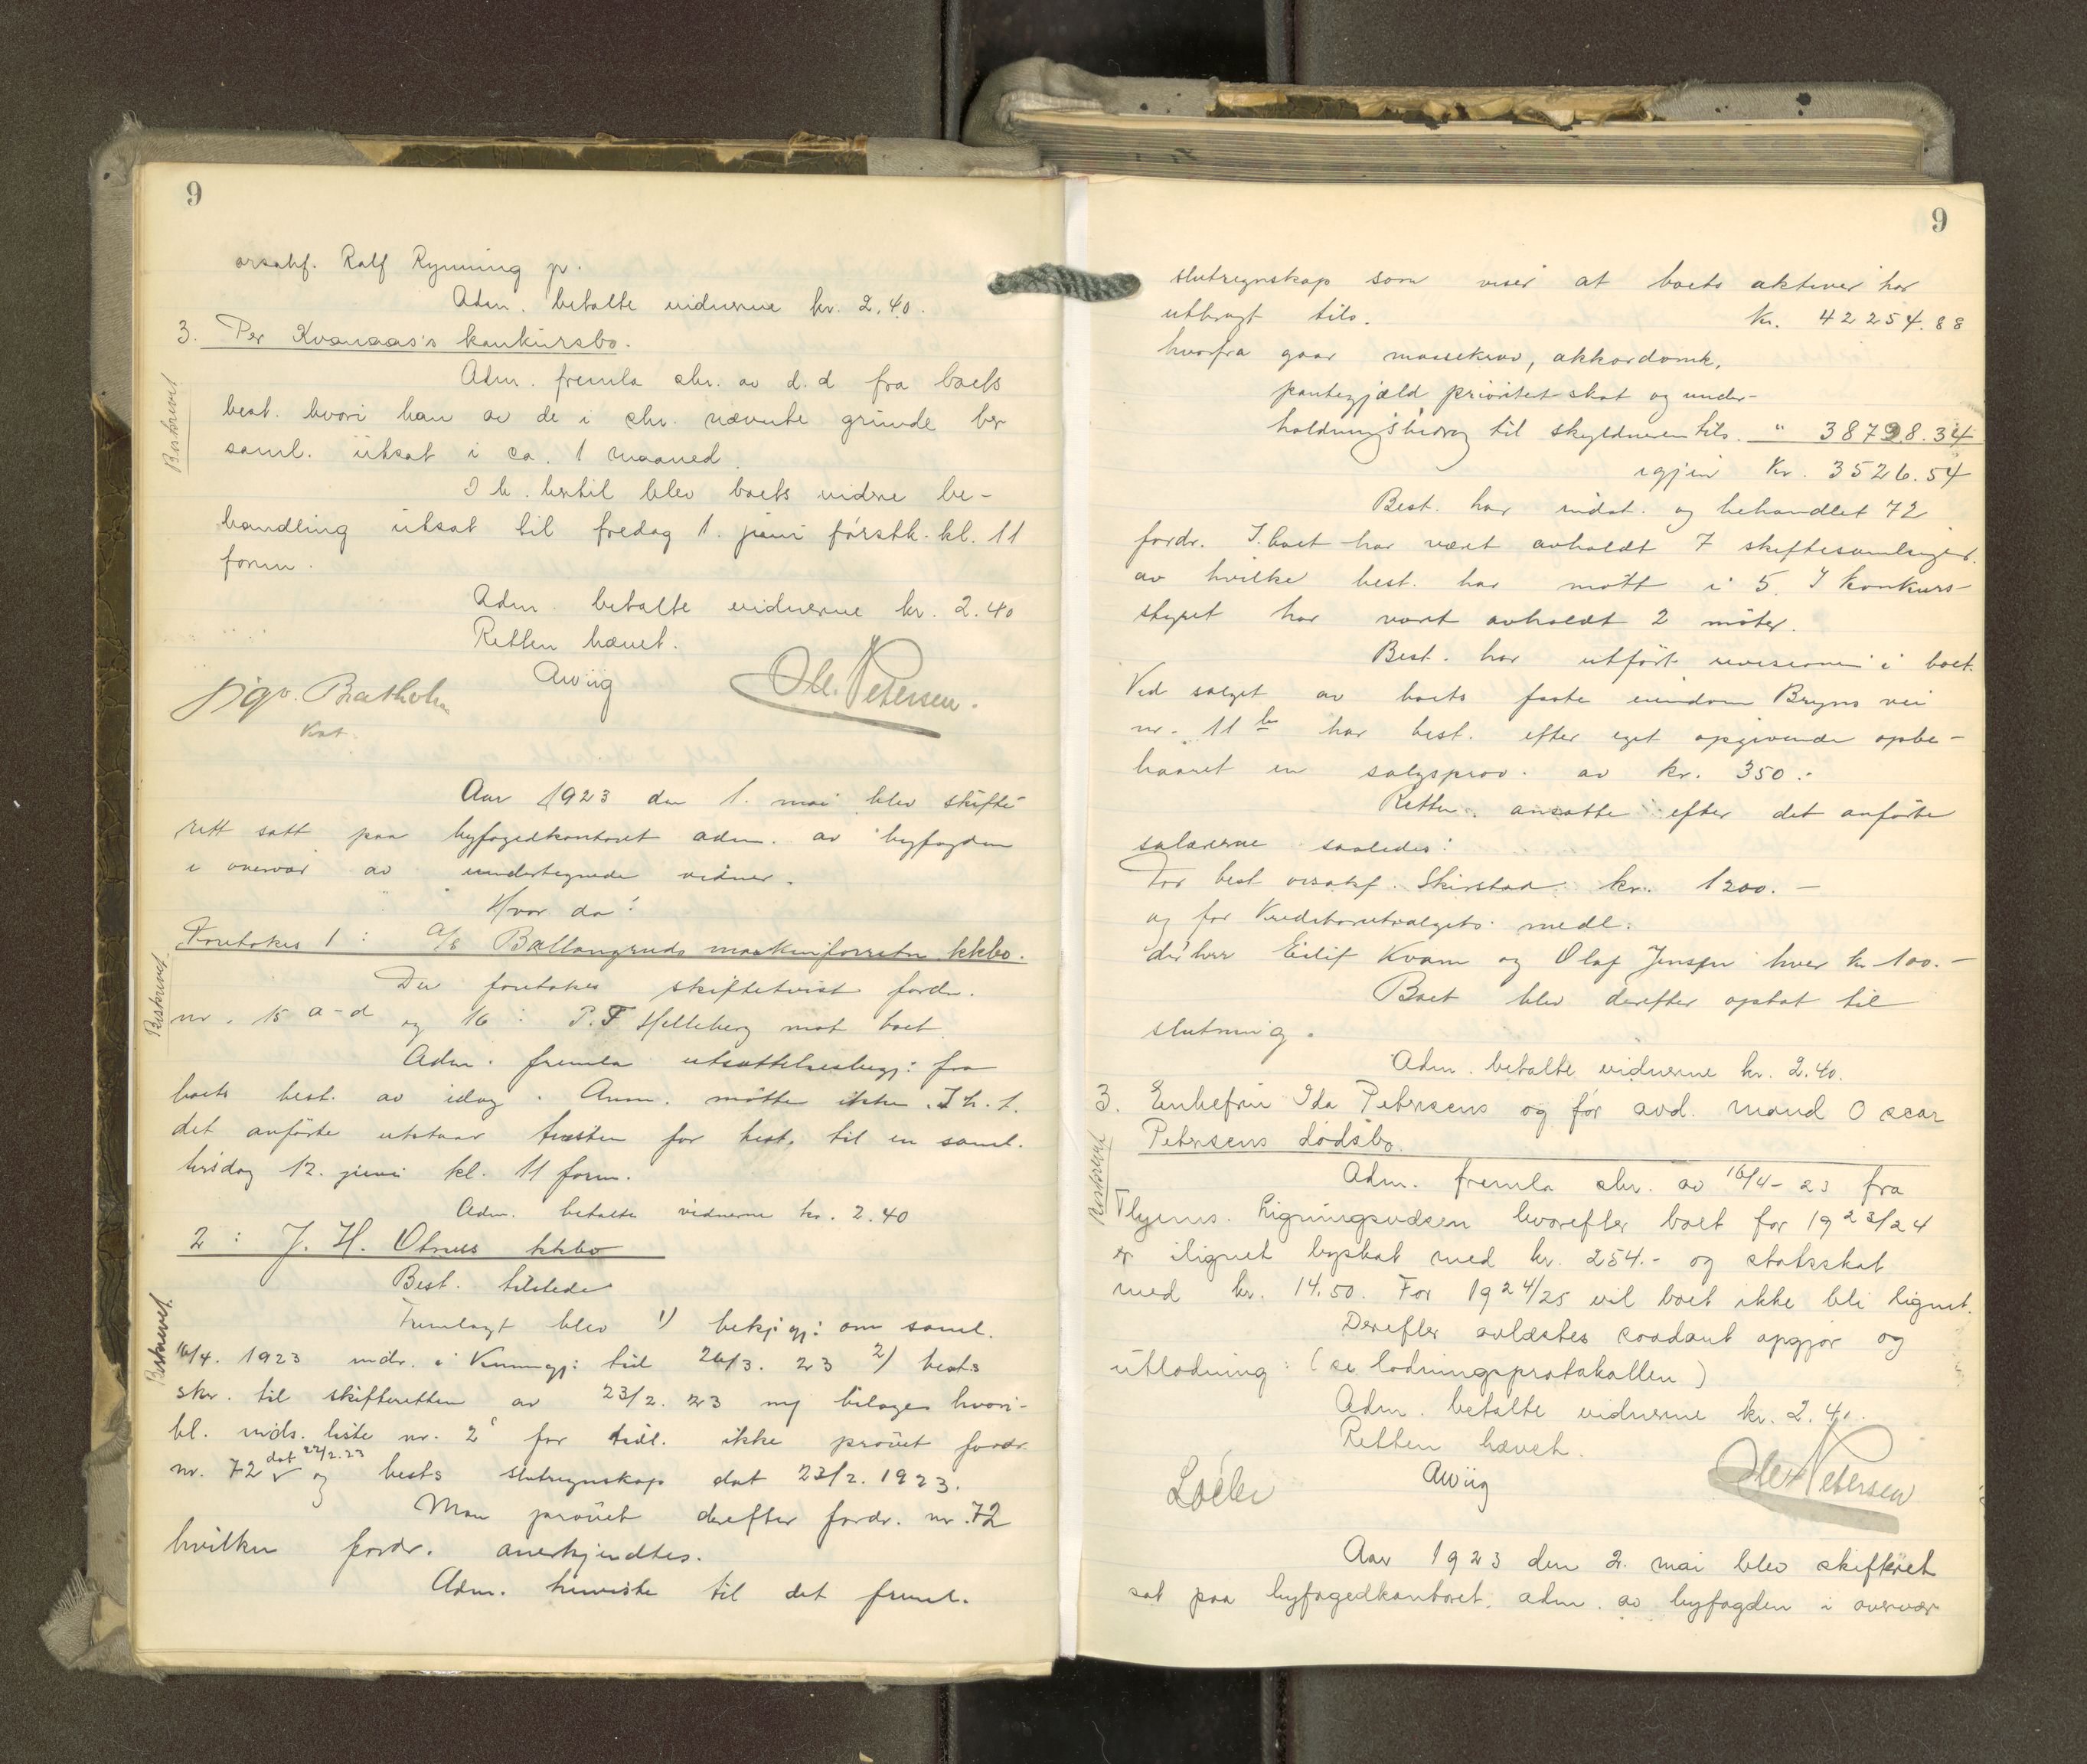 9
orsakf. Ralf Rynning p.
Adm. betalte vidnerne kr. 2.40.
3. Per Kvanaas's konkursbo.
Beskrevet
Adm. fremla skr. av d.d fra boets
best. hvori han av de i skr. nævnte grunde ber
saml. utsat i ca. 1 maaned.
I h. hertil blev boets videre be-
handling utsat til fredag 1. juni førstk. kl. 11
form.
Adm. betalte vidnerne kr. 2.40
Retten hævet.
Awiig
Ole Petersen.
Kst.
Aar 1923 den 1. mai blev skifte-
rett satt paa byfogedkontoret adm. av byfogden
i overvær av undertegnede vidner.
Hvor da:
Foretokes 1: A/S Ballangruds maskinforretn kkbo.
Beskrevet
Der foretokes skiftetvist fordr.
nr. 15 a-d og 16: P.F Helleberg mot boet
Adm. fremla utsættelsesbegj: fra
boets best. av idag. Anm. møtte ikke. I h. t.
det anførte utstaar tvisten for best. til en saml.
tirsdag 12. juni kl. 11 form.
Adm. betalte vidnerne kr. 2.40
2: J. H. Otnes kkbo
Best. tilstede
Beskrevet
Fremlagt blev 1) bekjgj: om saml.
16/4. 1923 indr. i Kunngj: tid 26/3. 23 2) bests
skr. til skifteretten av 23/2. 23 m/ bilages hvori-
bl. inds. liste nr. 2 for tidl. ikke prøvet fordr.
nr. 72 dat 22/2.23 og bests slutregnskap dat 23/2. 1923.
Man prøvet derefter fordr. nr. 72
hvilken fordr. anerkjendtes.
Adm. henviste til det freml.
9
slutregnskap som viser at boets aktiver har
utbragt tils. Kr. 42254.88
hvorfra gaar massekrav, akkordomk.
pantegjæld prioritet skat og under-
holdningsbidrag til skyldneren tils. " 38798.34
igjen Kr. 3526.54
Best. har indat. og behandlet 72
fordr. I boet har været avholdt 7 skiftesamlinger
av hvilke best. har møtt i 5. I konkurs-
styret har vært avholdt 2 møter.
Best. har utført revisionen i boet.
Ved salget av boets faste eiendom Bryns vei
nr. 11 har best. efter eget opgivende opbe-
baaret en salgsprov. av kr. 350.-
Retten ansatte efter det anførte
salærene saaledes:
For best orsakf. Skirstad kr. 1200.-
og for Kreditorutvalgets medl.
d'herr Eilif Kvam og Olaf Jensen hver kr 100.-
Boet blev derefter optat til
slutning.
Adm. betalte vidnerne kr. 2.40.
3. Enkefru Ida Petersens og før avd. mand Oscar
Petersens dødsbo.
Beskrevet
Adm. fremla skr. av 16/4-23 fra
Thjems. Ligningsvæsen hvorefter boet for 1923/24
er ilignet byskat med kr. 254.- og statsskat
med kr. 14.50. For 1924/25 vil boet ikke bli lignet.
Derefter avlæstes saadant opgjør og
utlodning: (se lodningsprotokollen)
Adm. betalte vidnerne kr. 2.40.
Retten hævet.
Awiig
Ole Petersen
Aar 1923 den 2. mai blev skifteret
sat paa byfogedkontoret. adm. av byfogden i overvær